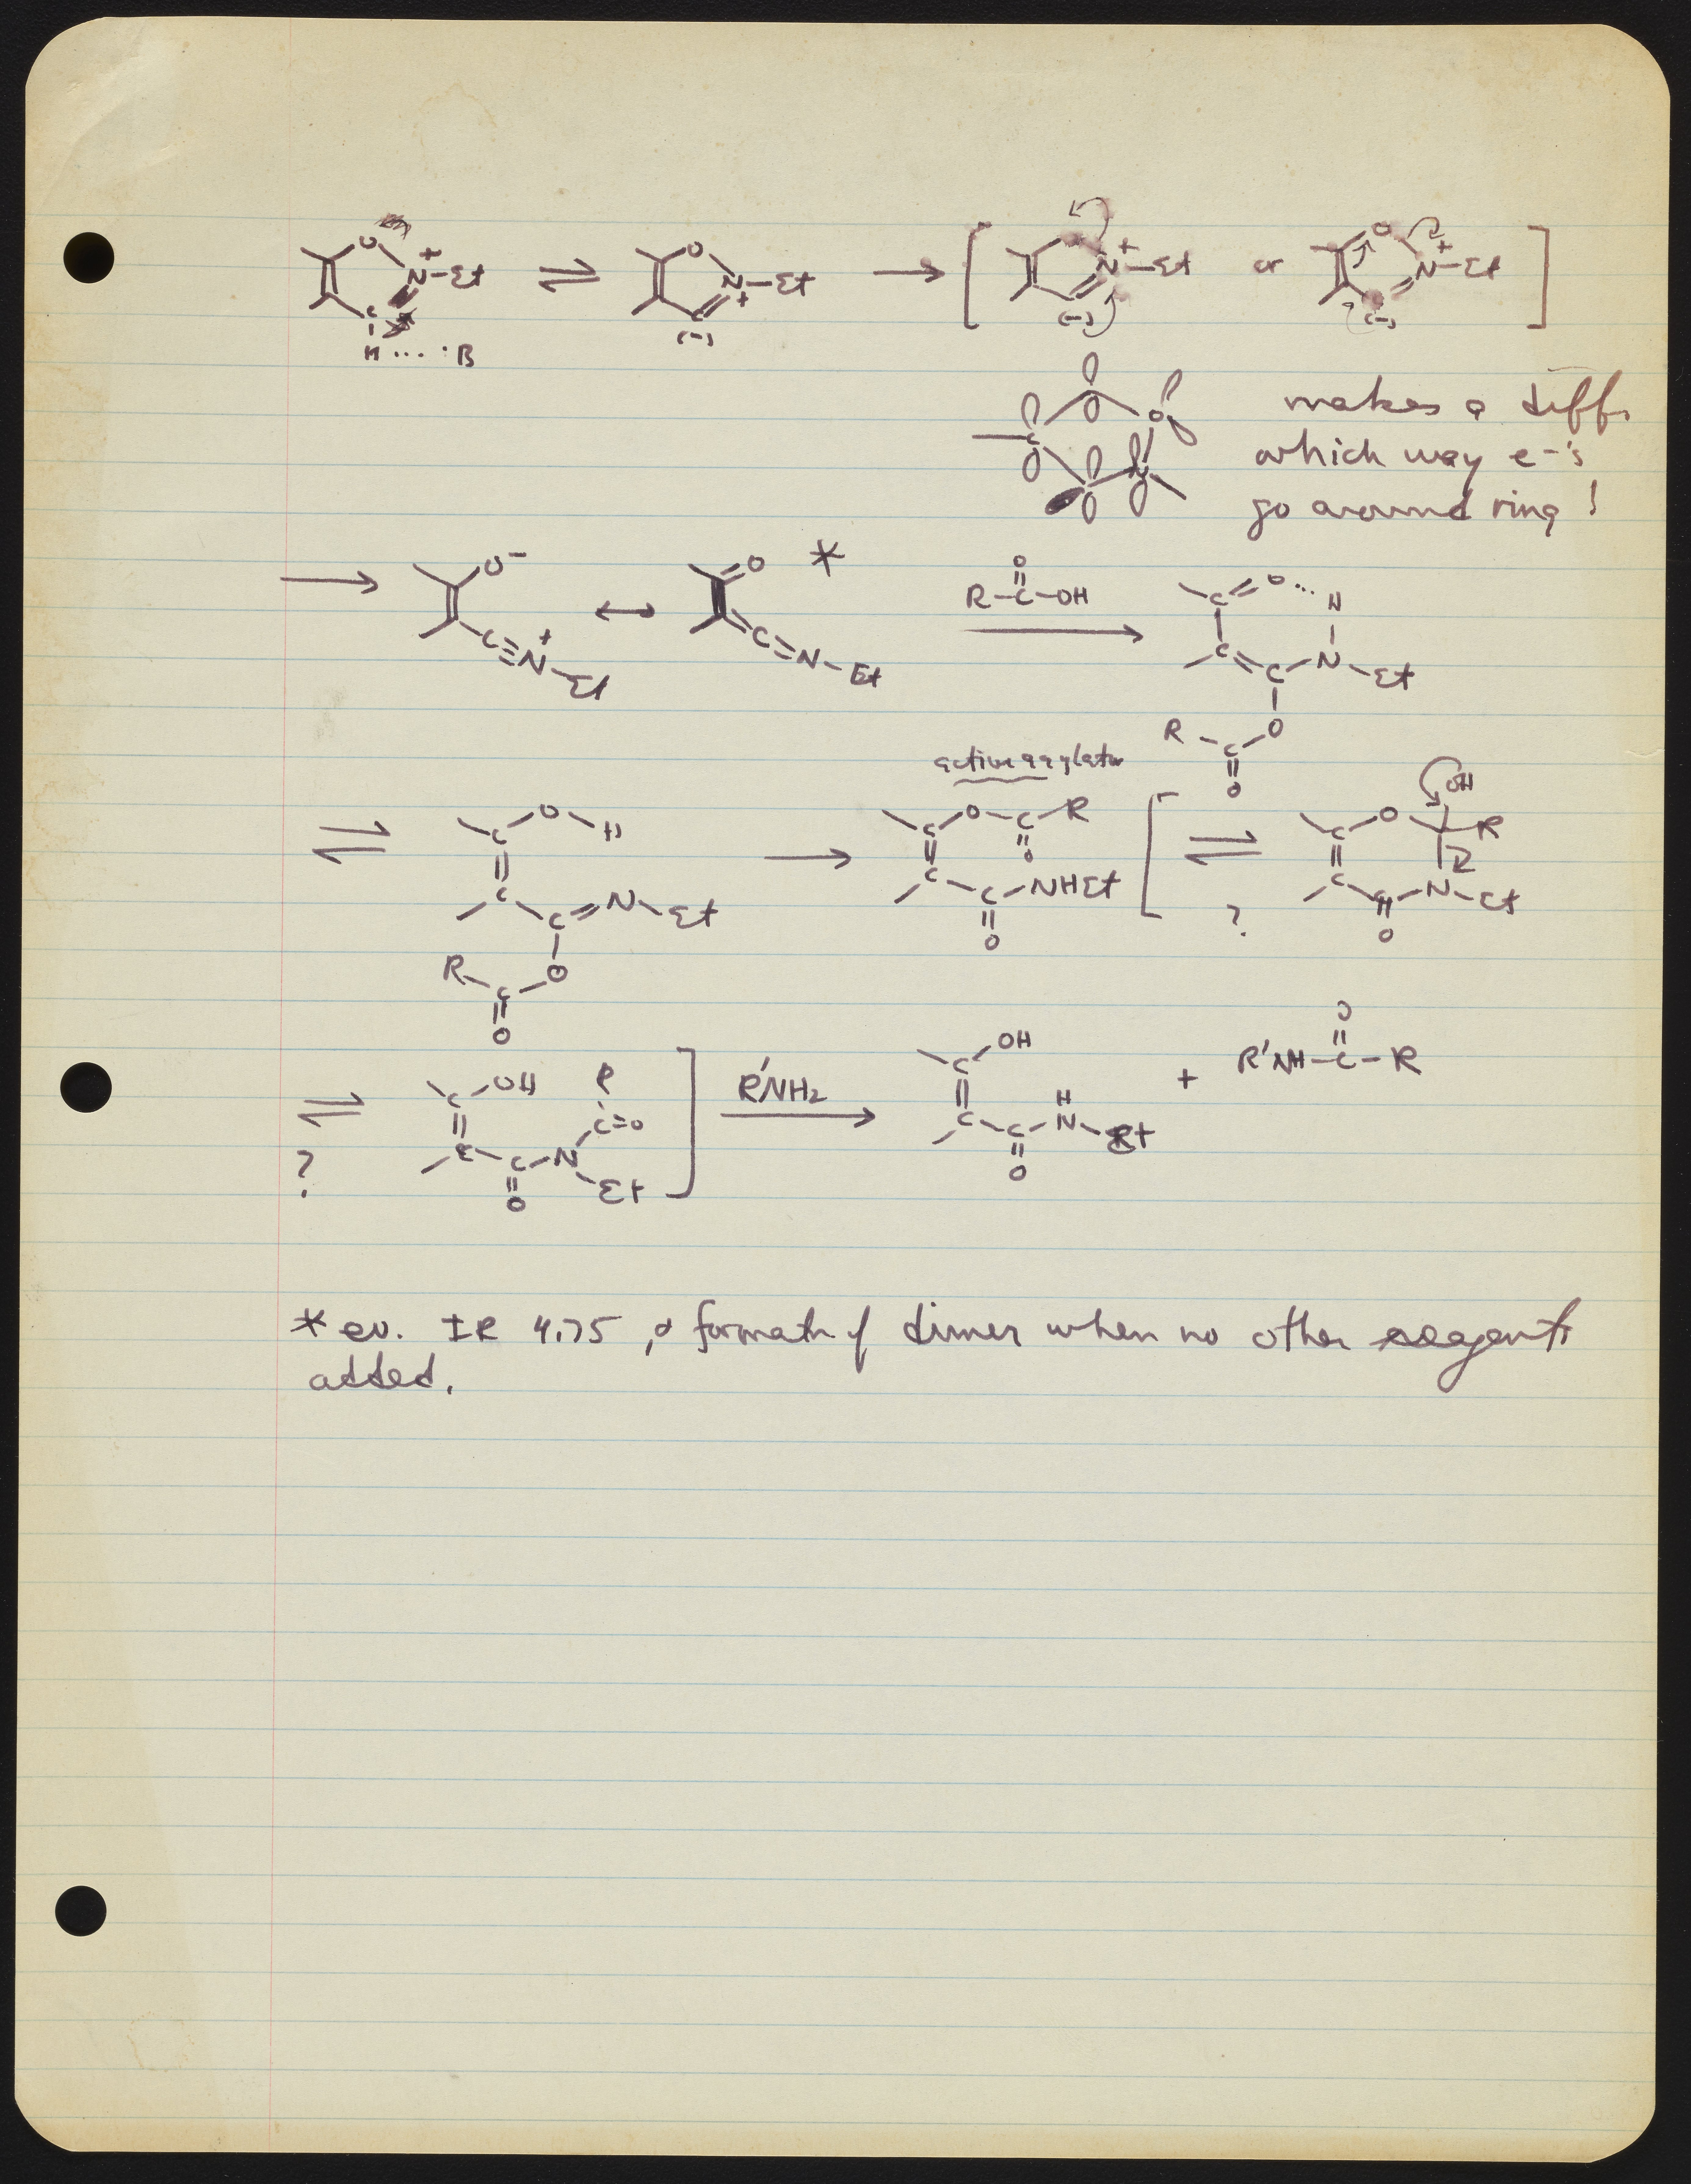 O N + Et ⇌ O N + Et → [ N + Et or O N + Et ]
C (-) (-) (-)
H ... :B
makes a diff.
which way e-'s
go around ring !
→ O- ↔ O * R-C-OH O → C=O...H
C≡N+ Et C=N-Et C=C-N-Et
R-C-O
O
active acylator
⇌ C-O-H → C-O-C-R [ ⇌ C-O OH R
C C=N-Et C C-NHEt ? C C-N-Et
O O O
R-C-O
O
⇌ C-OH R ] R'NH2 → C-OH + R'NH-C-R
? C C-N C=O C C-N-Et O
O Et O H
* ev. IR 4.75, & formatn of dimer when no other reagents
added.